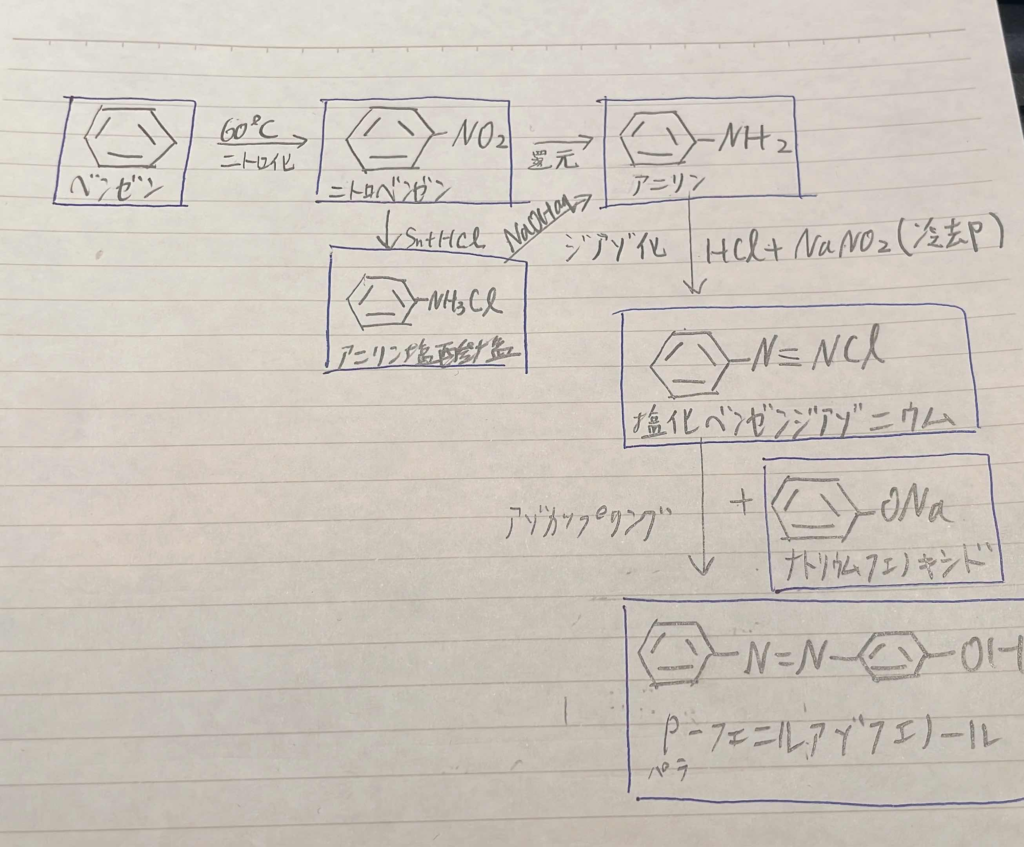 60℃
ニトロ化
ベンゼン
NO2
ニトロベンゼン
還元
NH2
アニリン
Sn+HCl
NaOHaq
NH3Cl
アニリン塩酸塩
ジアゾ化
HCl+NaNO2(冷去P)
N≡NCl
塩化ベンゼンジアゾニウム
アゾカップリング
+
ONa
ナトリウムフェノキシド
N=N
OH
P-フェニルアゾフェノール
パラ